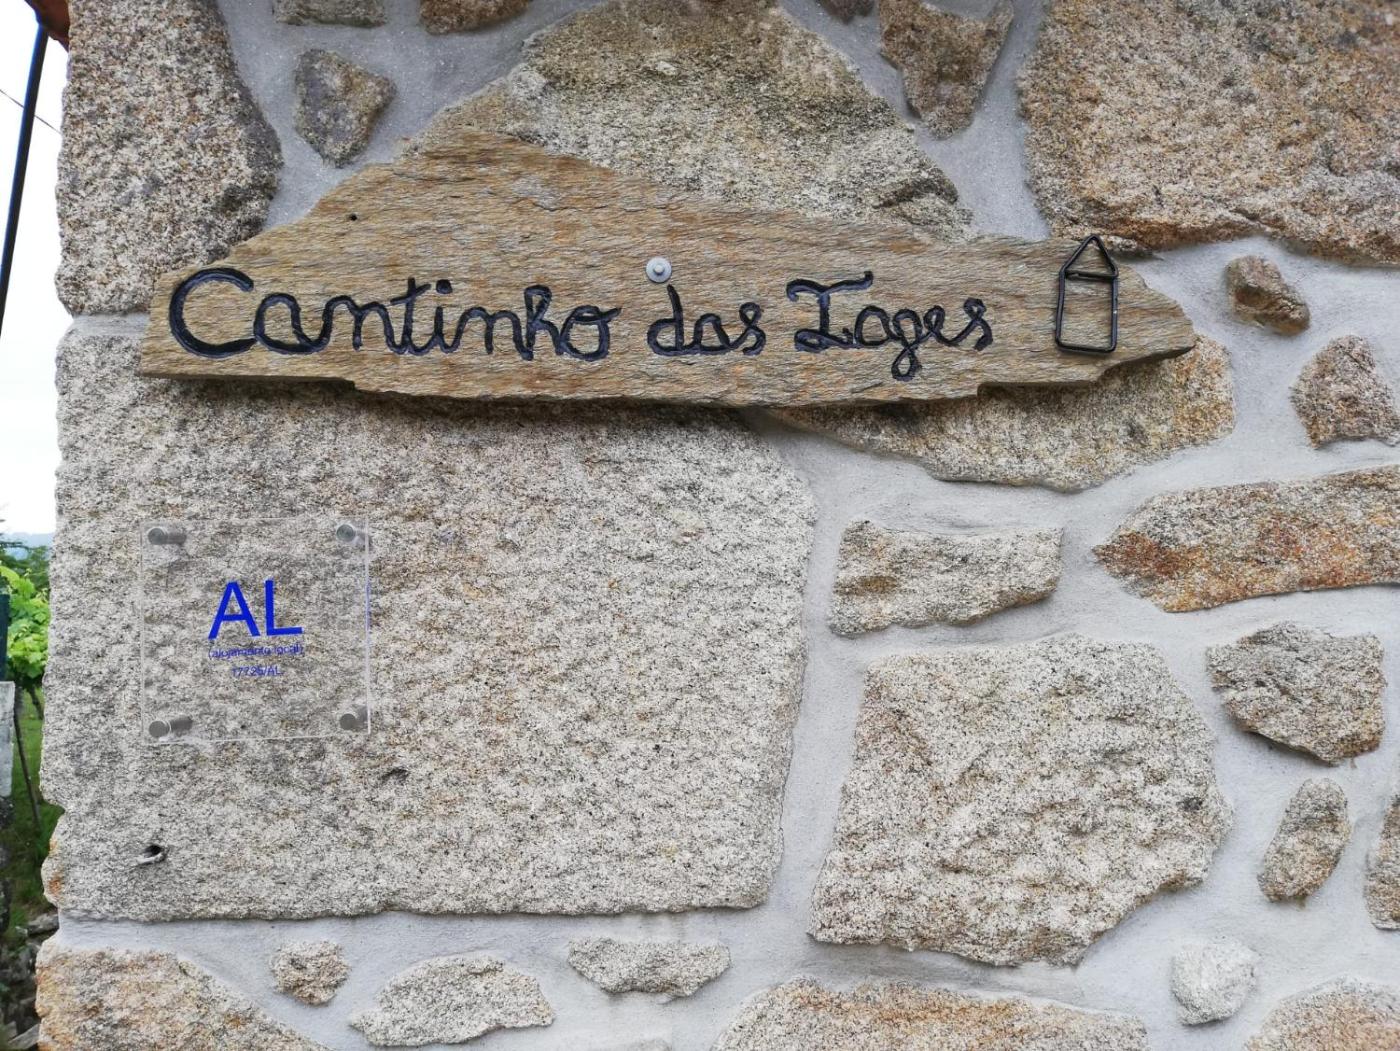 Cantinho das Lages
AL
(alojamento local)
17725/AL